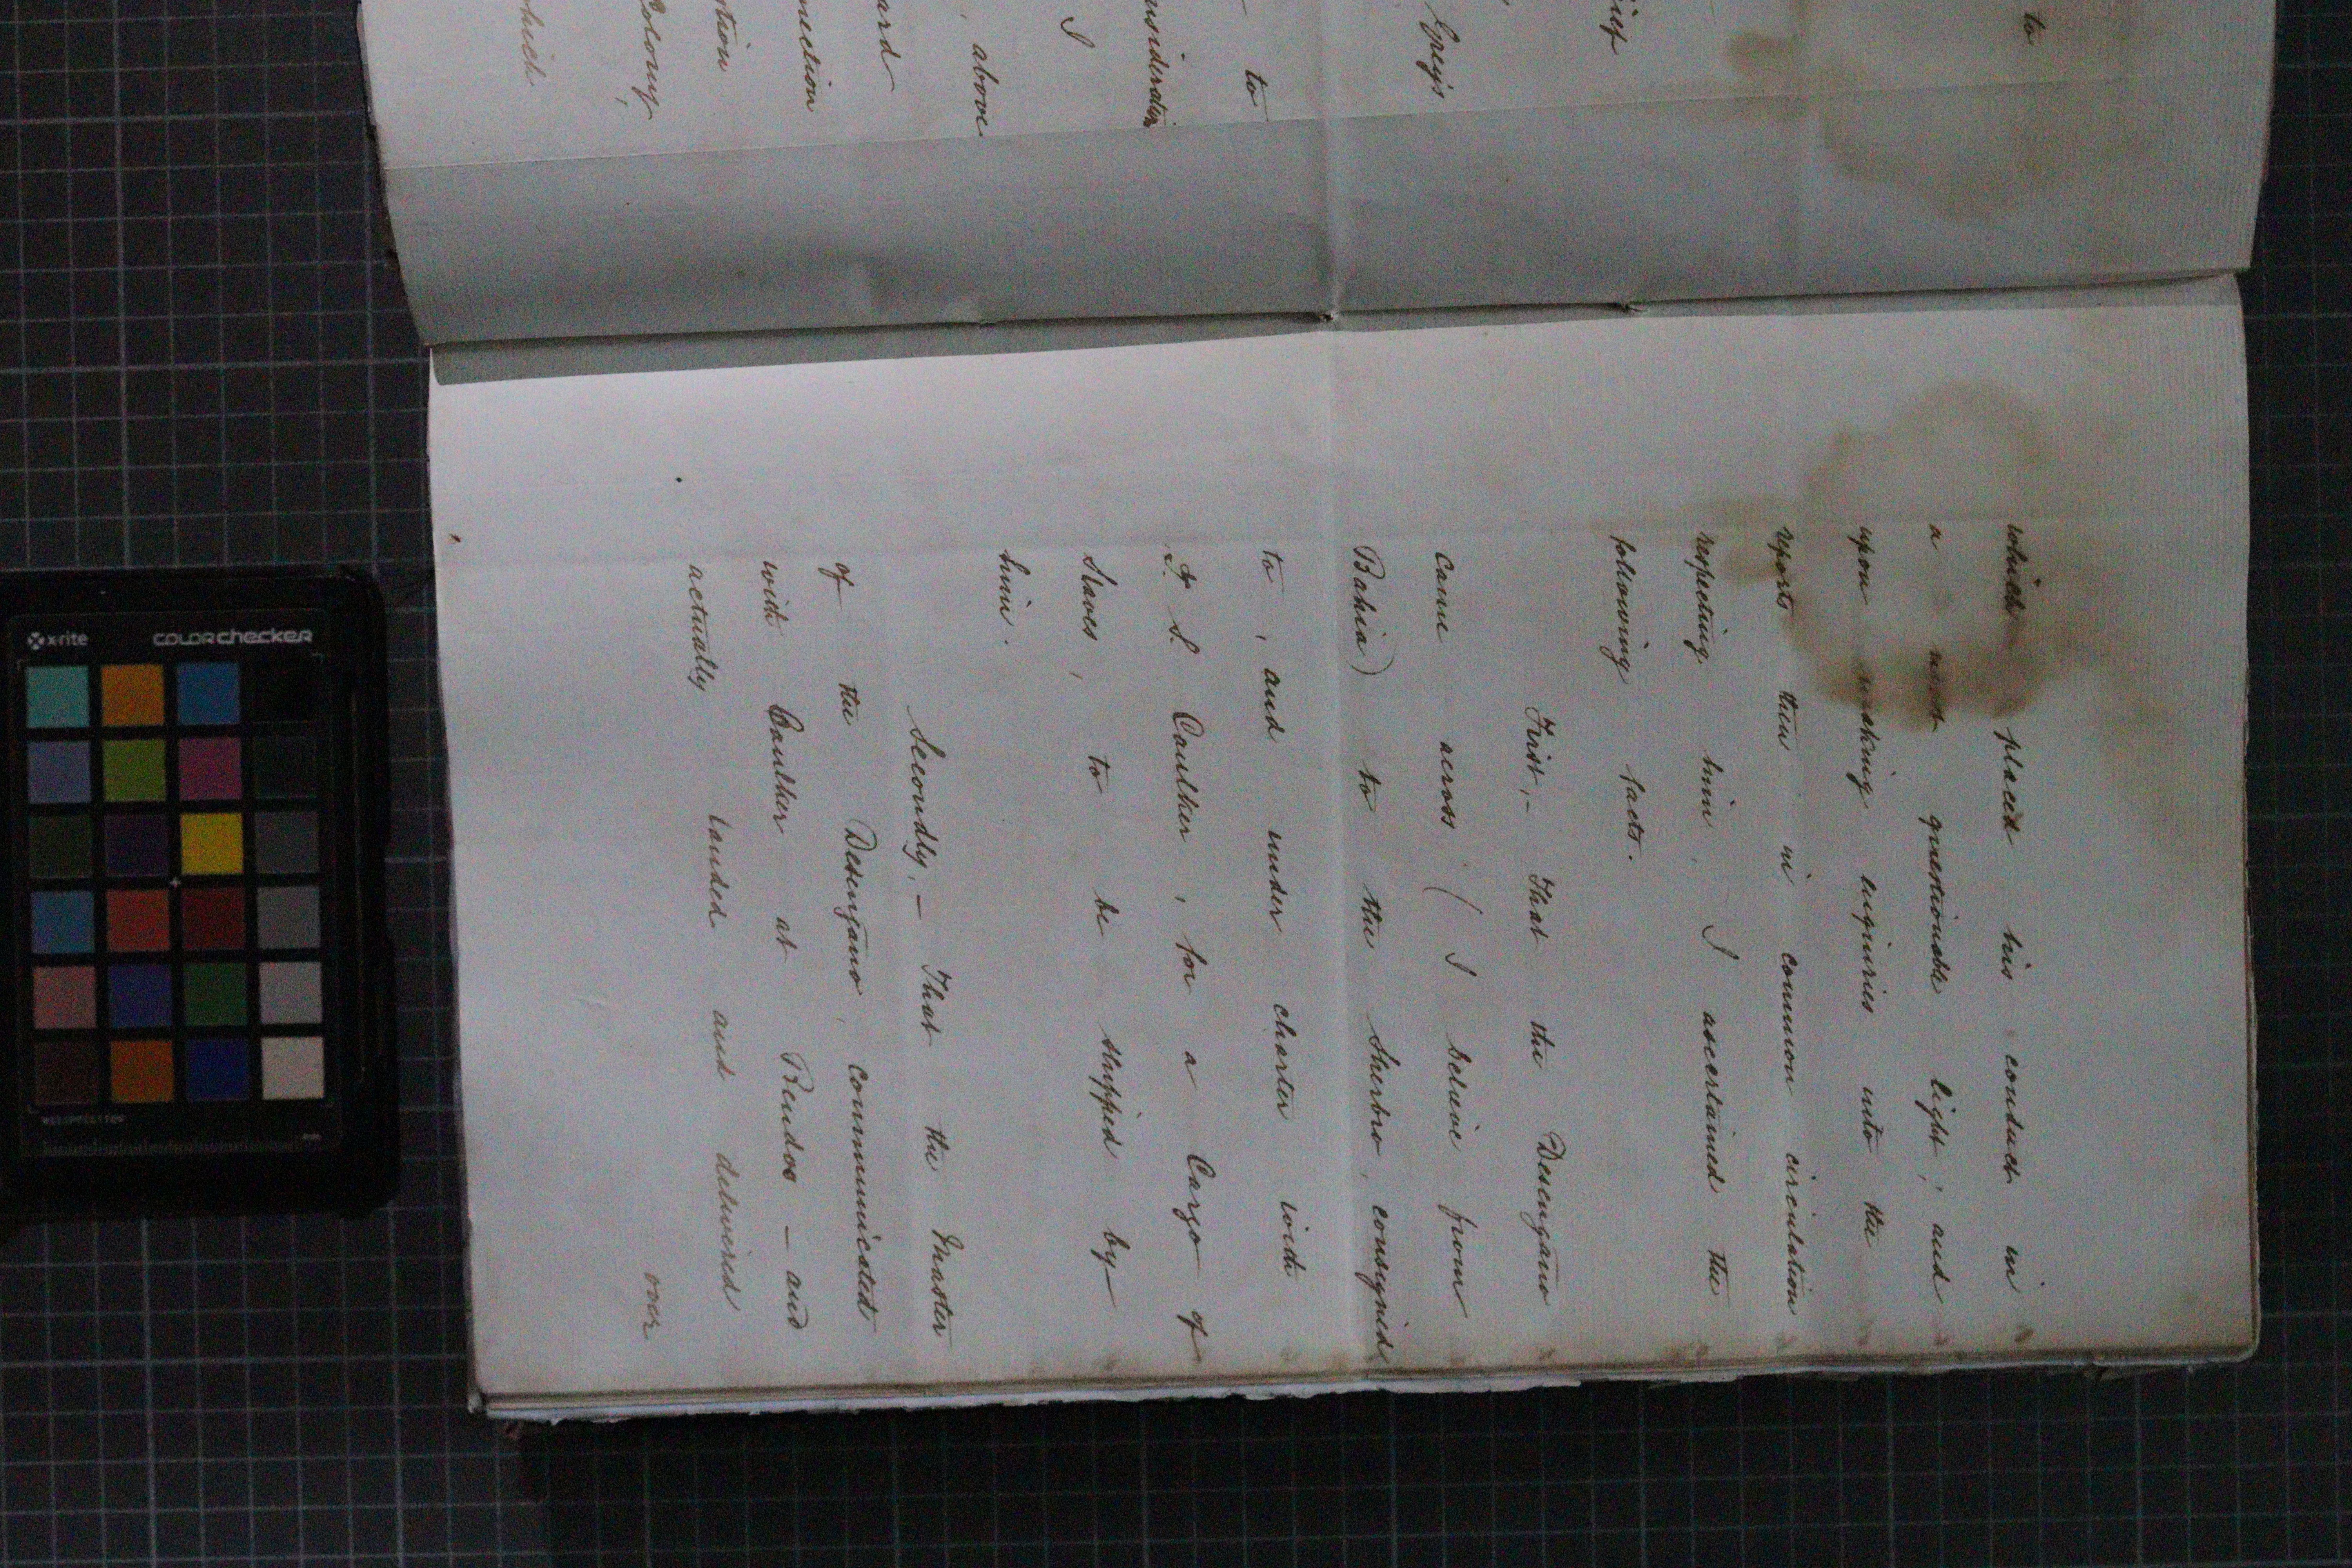 to
ief
Grey's
to
nsideration
I
above
ard
nection
tion
Colony,
hich
which placed his conduct in
a most questionable light; and
upon making enquiries into the
reports then in common circulation
respecting him, I ascertained the
following facts.
First,- That the Desengano
came across (I believe from
Bahia) to the Sherbro, consigned
to, and under charter with
Caulker, for a Cargo of
Slaves, to be shipped by
him.
Secondly,- That the Master
of the Desengano, communicated
with Caulker at Bendoo - and
actually landed and delivered
over
x-rite colorchecker